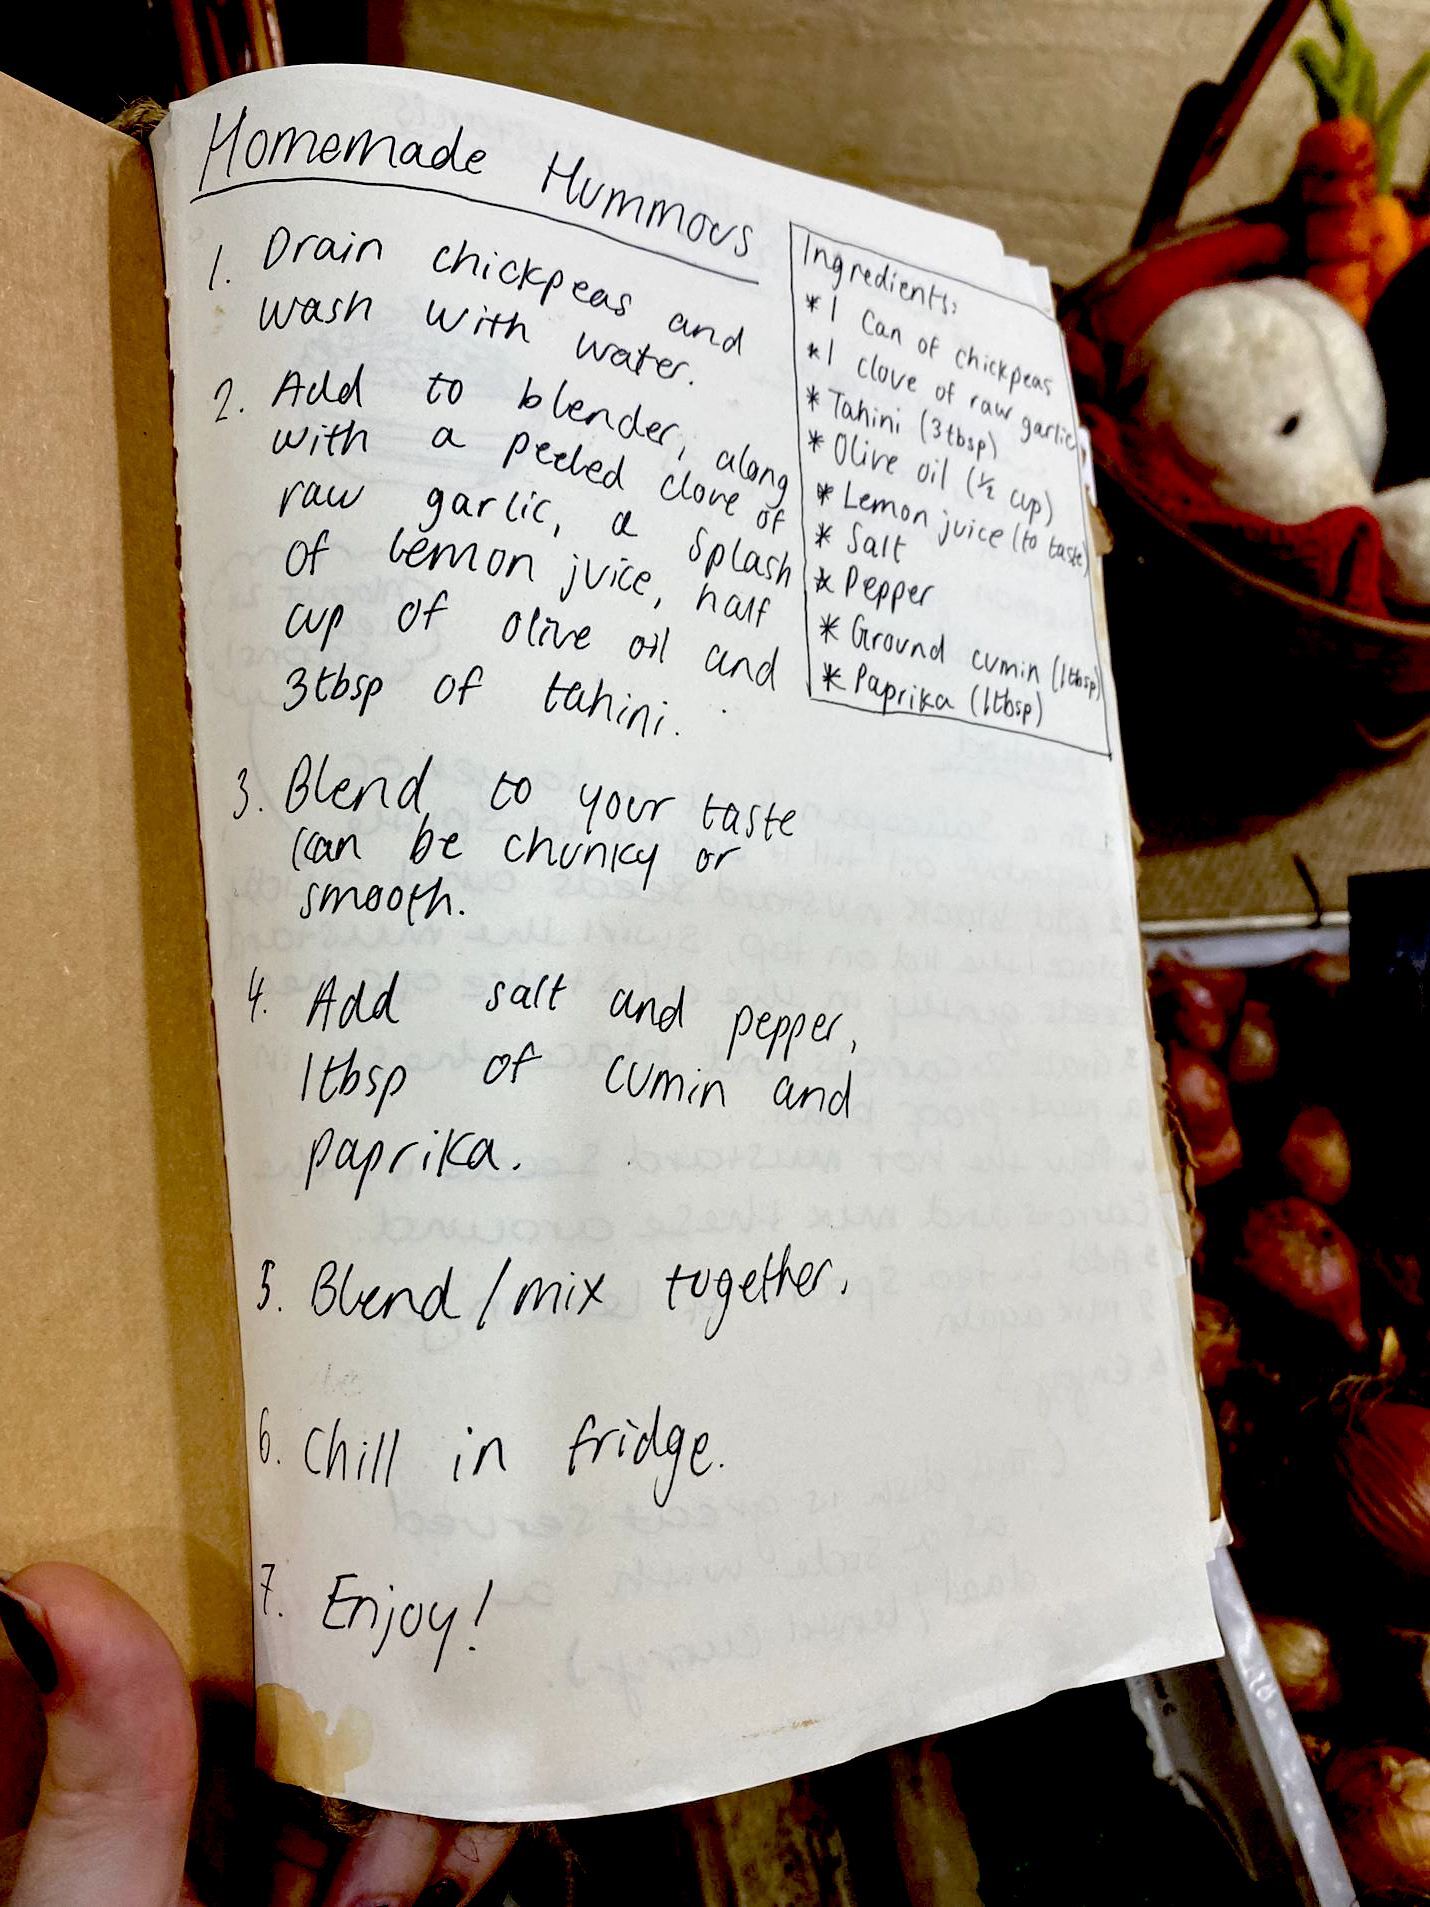 Homemade Hummous
1. Drain chickpeas and
wash with water.
2. Add to blender, along
with a peeled clove of
raw garlic, a splash
of lemon juice, half
cup of olive oil and
3tbsp of tahini.
3. Blend to your taste
(can be chunky or
smooth.
4. Add salt and pepper,
1tbsp of cumin and
paprika.
5. Blend/mix together.
6. Chill in fridge.
7. Enjoy!
Ingredients:
* 1 Can of chickpeas
* 1 clove of raw garlic
* Tahini (3tbsp)
* Olive oil (½ cup)
* Lemon juice (to taste)
* Salt
* Pepper
* Ground cumin (1tbsp)
* Paprika (1tbsp)